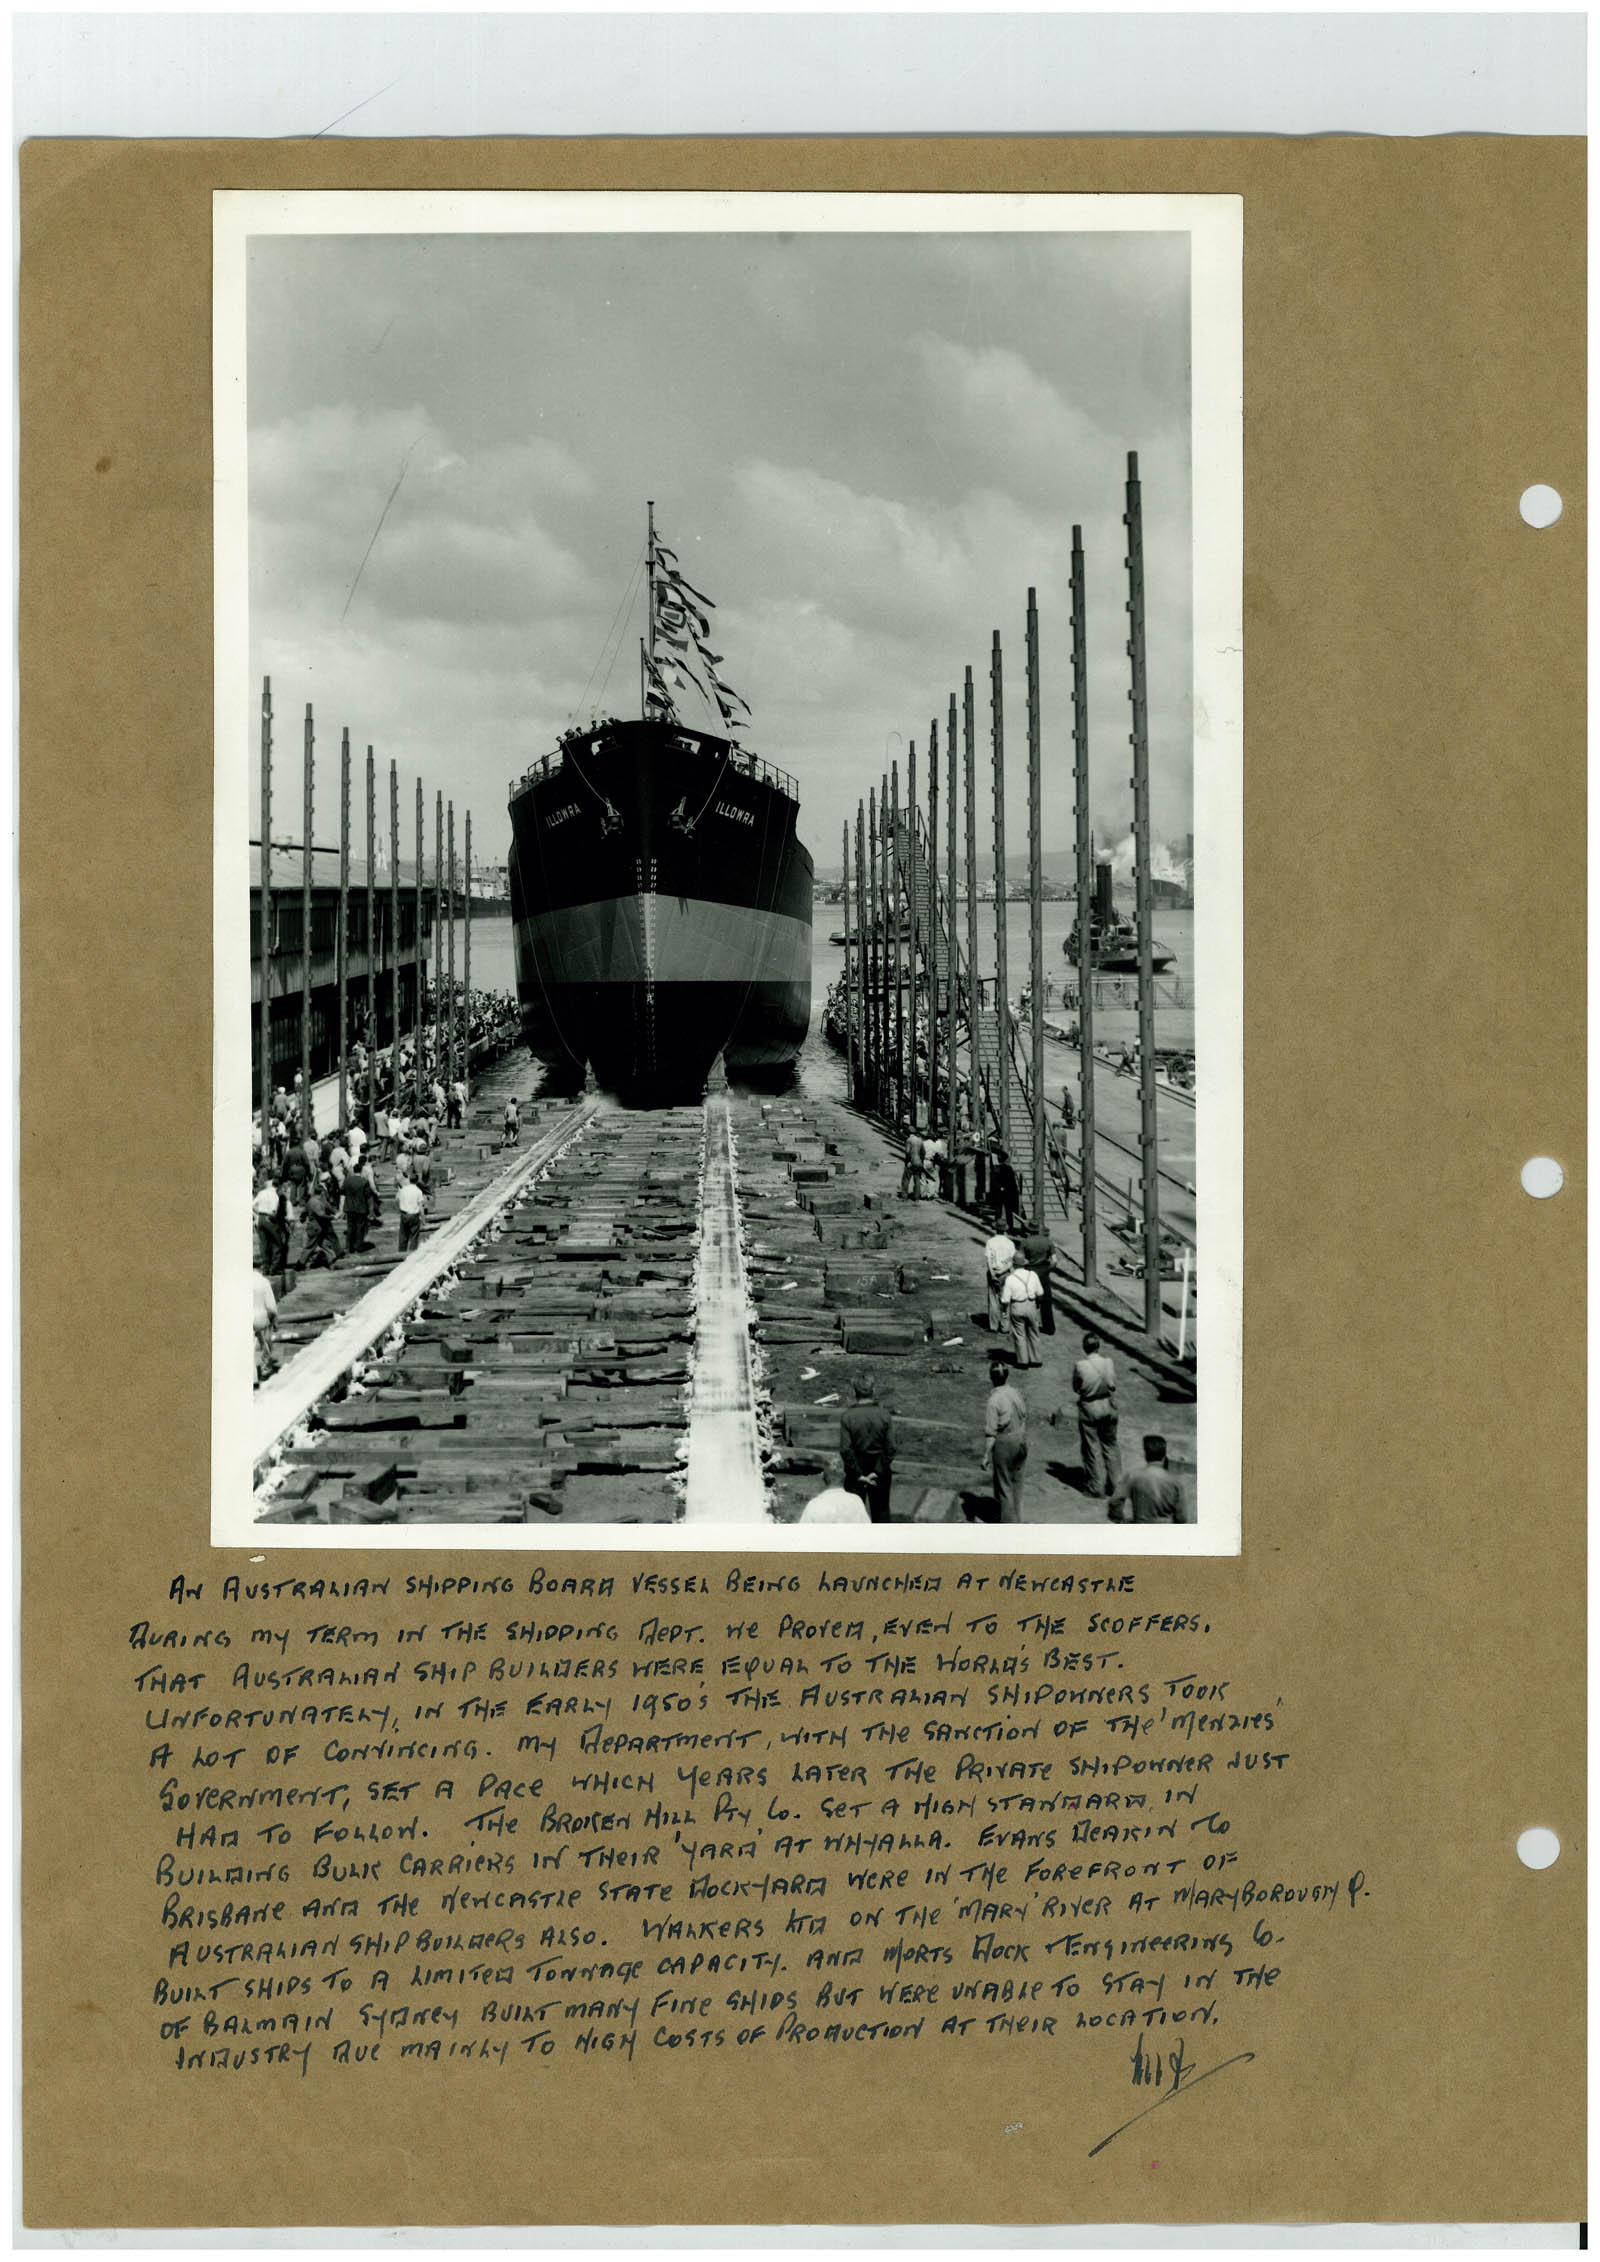 ILLOWRA
ILLOWRA
15F
AN AUSTRALIAN SHIPPING BOARD VESSEL BEING LAUNCHED AT NEWCASTLE
DURING MY TERM IN THE SHIPPING DEPT. WE PROVED, EVEN TO THE SCOFFERS,
THAT AUSTRALIAN SHIP BUILDERS WERE EQUAL TO THE WORLD'S BEST.
UNFORTUNATELY, IN THE EARLY 1950'S THE AUSTRALIAN SHIPOWNERS TOOK
A LOT OF CONVINCING. MY DEPARTMENT, WITH THE SANCTION OF THE 'MENZIES'
GOVERNMENT, SET A PACE WHICH YEARS LATER THE PRIVATE SHIPOWNER JUST
HAD TO FOLLOW. THE BROKEN HILL PTY CO. SET A HIGH STANDARD, IN
BUILDING BULK CARRIERS IN THEIR 'YARD' AT WHYALLA. EVANS DEAKIN CO
BRISBANE AND THE NEWCASTLE STATE DOCKYARD WERE IN THE FOREFRONT OF
AUSTRALIAN SHIPBUILDERS ALSO. WALKERS LTD ON THE 'MARY' RIVER AT MARYBOROUGH Q.
BUILT SHIPS TO A LIMITED TONNAGE CAPACITY. AND MORTS DOCK & ENGINEERING CO.
OF BALMAIN SYDNEY BUILT MANY FINE SHIPS BUT WERE UNABLE TO STAY IN THE
INDUSTRY DUE MAINLY TO HIGH COSTS OF PRODUCTION AT THEIR LOCATION.